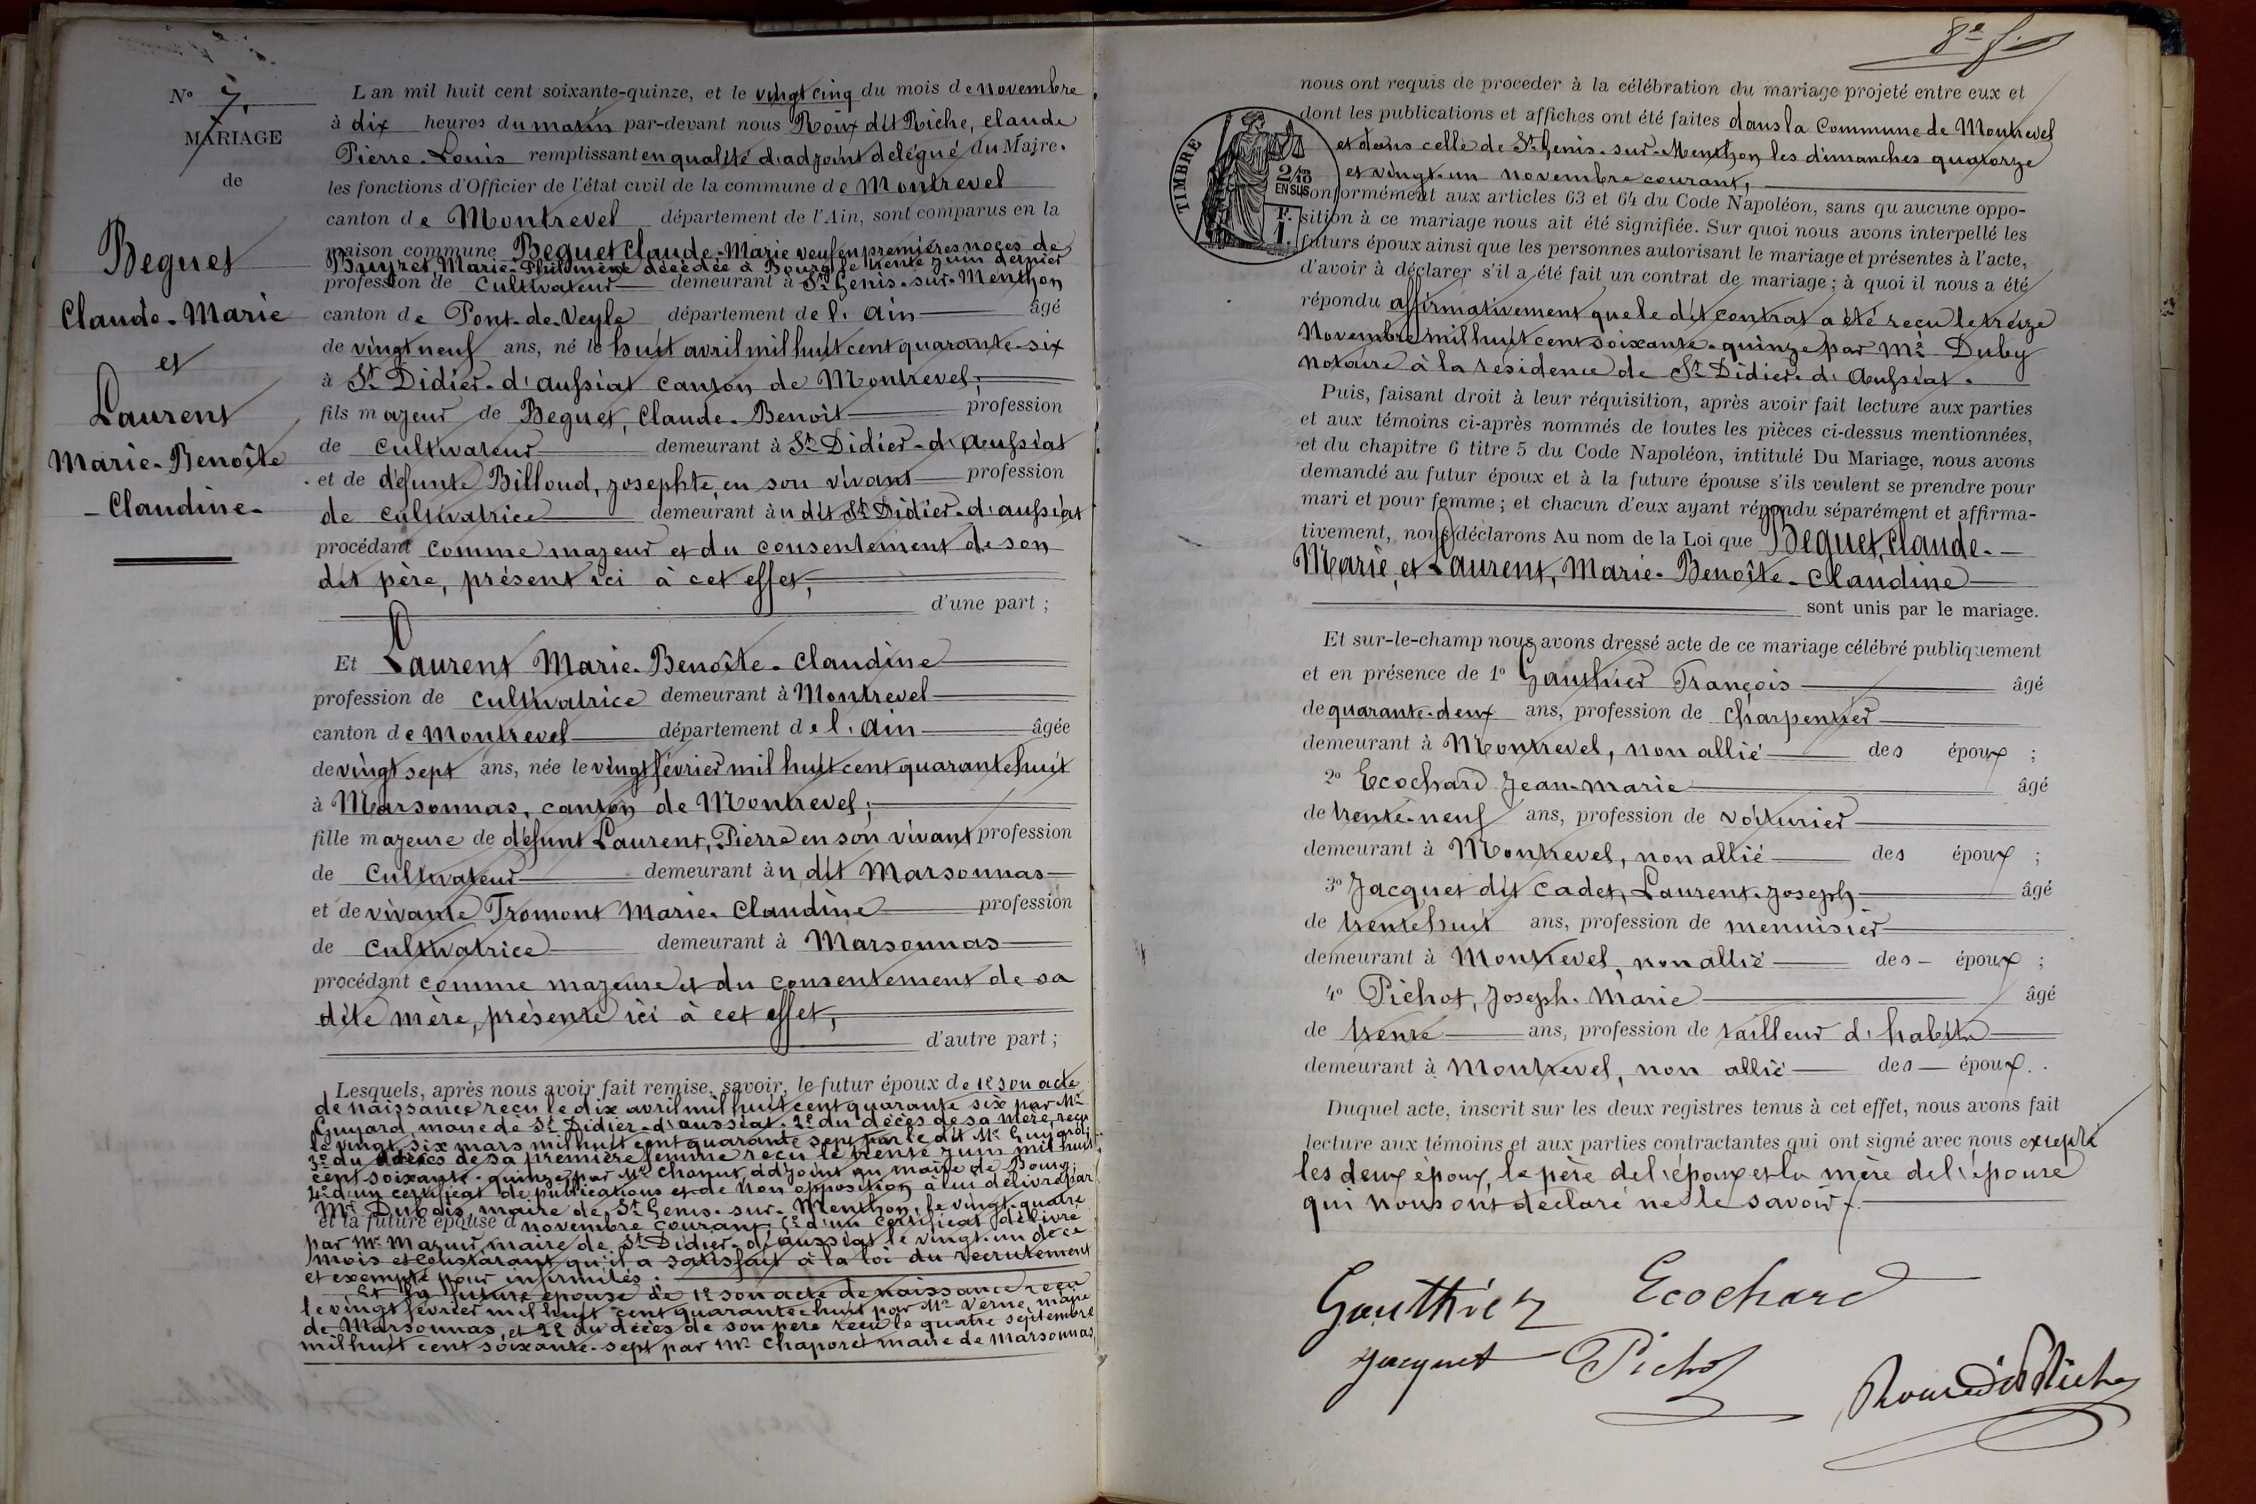 N° 7.
MARIAGE
de
Beguet
Claude-Marie
et
Laurent
Marie-Benoîte
- Claudine -
L an mil huit cent soixante-quinze, et le vingt cinq du mois de novembre
à dix heures du matin par-devant nous Roux dit Riche, claude
Pierre-Louis remplissant en qualité d'adjoint délégué du Maire.
les fonctions d'Officier de l'état civil de la commune de Montrevel
canton de Montrevel département de l'Ain, sont comparus en la
maison commune Beguet Claude-Marie veuf en premières noces de
Buyret, Marie-Philomène décédée à Bourg le trente juin dernier
profession de Cultivateur demeurant à St Genis-sur-Menthon
canton de Pont-de-Veyle département de l'Ain âgé
de vingt neuf ans, né le huit avril mil huit cent quarante-six
à St Didier-d'aussiat canton de Montrevel;
fils majeur de Beguet, Claude-Benoit profession
de cultivateur demeurant à St Didier-d'Aussiat
et de défunte Billoud, josephte, en son vivant profession
de cultivatrice demeurant au dit St Didier-d'aussiat
procédant comme majeur et du consentement de son
dit père, présent ici à cet effet,
d'une part ;
Et Laurent Marie-Benoîte-Claudine
profession de cultivatrice demeurant à Montrevel
canton de Montrevel département de l'Ain âgée
de vingt sept ans, née le vingt février mil huit cent quarante huit
à Marsonnas, canton de Montrevel;
fille majeure de défunt Laurent, Pierre en son vivant profession
de Cultivateur demeurant au dit Marsonnas
et de vivante Tromont Marie-Claudine profession
de cultivatrice demeurant à Marsonnas
procédant comme majeure et du consentement de sa
dite mère, présente ici à cet effet,
d'autre part ;
Lesquels, après nous avoir fait remise, savoir, le futur époux de 1° son acte
de naissance reçu le dix avril mil huit cent quarante six par Mr
Guyard, maire de St Didier-d'aussiat. 2° du décès de sa mère, reçu
le vingt six mars mil huit cent quarante sept par le dit Mr Guyard;
3° du décès de sa première femme reçu le trente juin mil huit
cent soixante-quinze, par Mr Chanut adjoint au maire de Bourg;
4° d'un certificat de publications et de non opposition à lui délivré par
Mr Dubois, maire de St Genis-sur-Menthon, le vingt-quatre
et la future épouse d novembre courant; 5° d'un certificat délivré
par Mr Mazuir, maire de St Didier-d'aussiat le vingt-un de ce
mois et constatant qu'il a satisfait à la loi du recrutement
et exempté pour infirmités.
Et la future épouse de 1° son acte de naissance reçu
le vingt février mil huit cent quarante huit par Mr Verne, maire
de Marsonnas, et 2° du décès de son père reçu le quatre septembre
mil huit cent soixante-sept par Mr Chaporet maire de Marsonnas,
8e f.
TIMBRE
2/10
EN SUS
F.
1.
nous ont requis de proceder à la célébration du mariage projeté entre eux et
dont les publications et affiches ont été faites dans la Commune de Montrevel
et dans celle de St Genis-sur-Menthon les dimanches quatorze
et vingt-un novembre courant,
conformément aux articles 63 et 64 du Code Napoléon, sans qu aucune oppo-
sition à ce mariage nous ait été signifiée. Sur quoi nous avons interpellé les
futurs époux ainsi que les personnes autorisant le mariage et présentes à l'acte,
d'avoir à déclarer s'il a été fait un contrat de mariage ; à quoi il nous a été
répondu affirmativement que le dit contrat a été reçu le treize
Novembre mil huit cent soixante-quinze par Me Duby
notaire à la résidence de St Didier-d'Aussiat.
Puis, faisant droit à leur réquisition, après avoir fait lecture aux parties
et aux témoins ci-après nommés de toutes les pièces ci-dessus mentionnées,
et du chapitre 6 titre 5 du Code Napoléon, intitulé Du Mariage, nous avons
demandé au futur époux et à la future épouse s'ils veulent se prendre pour
mari et pour femme ; et chacun d'eux ayant répondu séparément et affirma-
tivement, nous déclarons Au nom de la Loi que Beguet, Claude-
Marie, et Laurent, Marie-Benoîte-Claudine
sont unis par le mariage.
Et sur-le-champ nous avons dressé acte de ce mariage célébré publiquement
et en présence de 1° Gauthier François âgé
de quarante-deux ans, profession de charpentier
demeurant à Montrevel, non allié des époux ;
2° Ecochard Jean-marie âgé
de trente-neuf ans, profession de voiturier
demeurant à Montrevel, non allié des époux ;
3° Jacquet dit Cadet, Laurent-Joseph âgé
de trente huit ans, profession de menuisier
demeurant à Montrevel, non allié des époux ;
4° Pichot, Joseph-Marie âgé
de trente ans, profession de tailleur d'habits
demeurant à Montrevel, non allié des époux.
Duquel acte, inscrit sur les deux registres tenus à cet effet, nous avons fait
lecture aux témoins et aux parties contractantes qui ont signé avec nous excepté
les deux époux, le père de l'époux et la mère de l'épouse
qui nous ont déclaré ne le savoir.
Gauthier Ecochard
Jacquet Pichot
Roux dit Riche